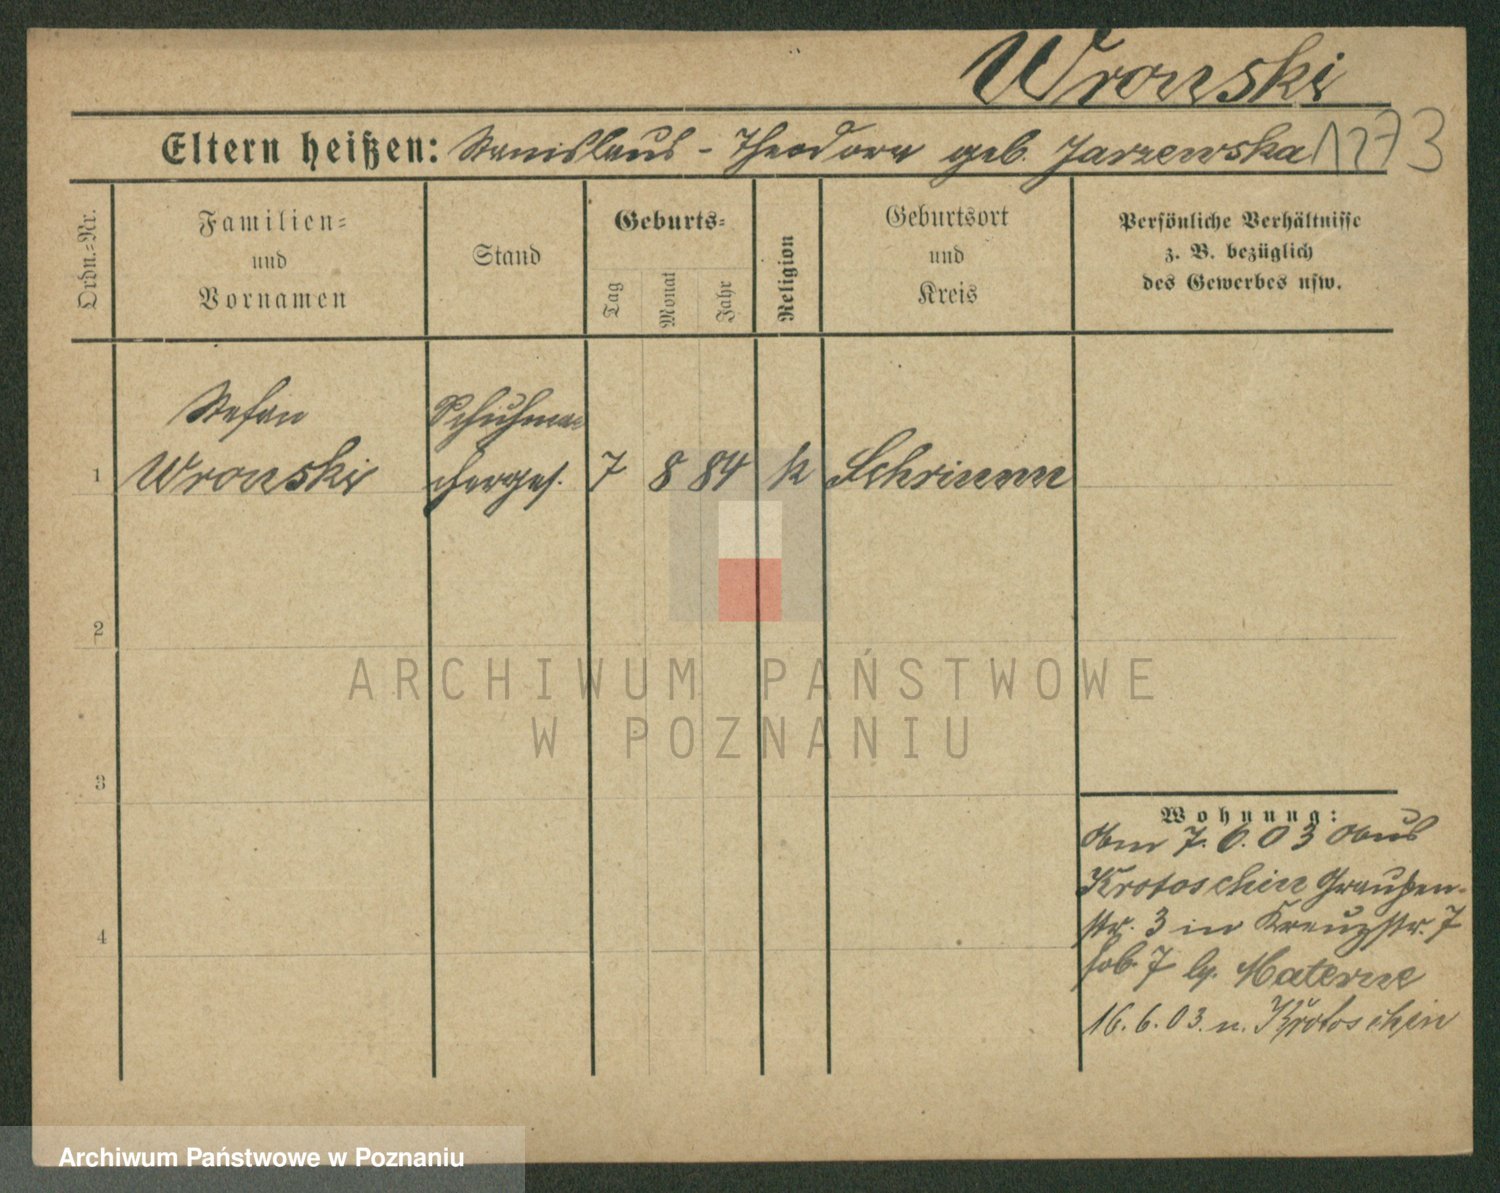 Wronski
Eltern heißen: Stanislaus - Theodora geb. Jarzewska 1273
Ordn.-Nr.
Familien-
und
Vornamen
Stand
Geburts-
Tag
Monat
Jahr
Religion
Geburtsort
und
Kreis
Persönliche Verhältnisse
z. B. bezüglich
des Gewerbes usw.
Stefan Schuhma
1 Wronski cherges. 7 8 84 k Schrimm
2
3
4
Wohnung:
Am 7. 6. 03 aus
Krotoschin
str. 3 in Kreuzstr. 7
7 Materne
16. 6. 03. n. Krotoschin
ARCHIWUM PAŃSTWOWE
W POZNANIU
Archiwum Państwowe w Poznaniu